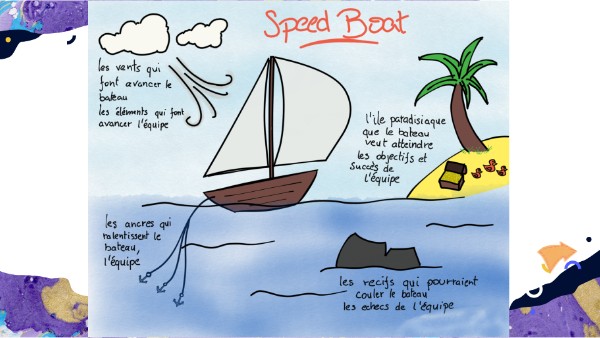 Speed Boat
les vents qui
font avancer le
bateau
les éléments qui font
avancer l'équipe
l'île paradisiaque
que le bateau
veut atteindre
les objectifs et
succès de
l'équipe
les ancres qui
ralentissent le
bateau,
l'équipe
les recifs qui pourraient
couler le bateau
les echecs de l'équipe